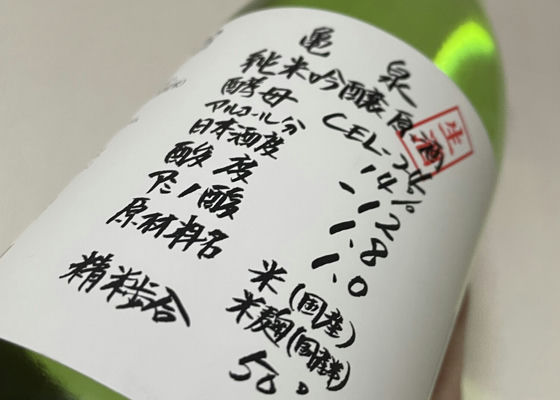 亀泉
純米吟醸原酒
生酒
酵母 CEL-24
アルコール分 14%
日本酒度 -12
酸度 1.8
アミノ酸 1.0
原材料名 米(国産)
米麹(国産米)
精米歩合 50